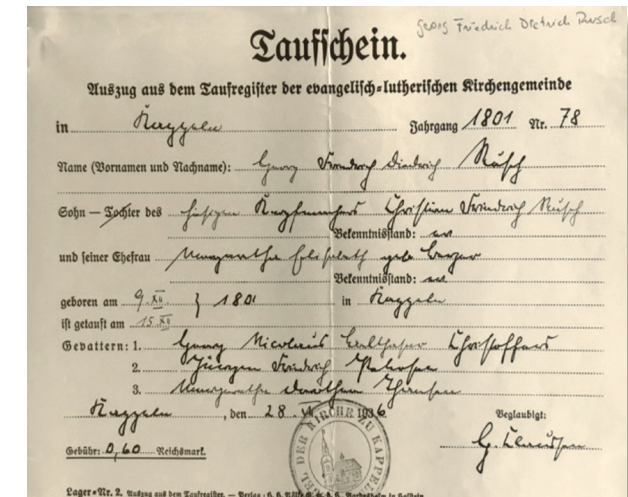 Georg Friedrich Dietrich Rusch
Taufschein.
Auszug aus dem Taufregister der evangelisch-lutherischen Kirchengemeinde
in Kappeln Jahrgang 1801 Nr. 78
Name (Vornamen und Nachname): Georg Friedrich Diedrich Rusch
Sohn — Tochter des hiesigen Christian Friedrich Rusch
Bekenntnisstand: ev
und seiner Ehefrau Margaretha Elisabeth geb.
Bekenntnisstand: ev
geboren am 9. XII. } 1801 in Kappeln
ist getauft am 15. XII
Gevattern: 1. Georg Nicolaus Balthasar Christoffers
2. Jürgen Friedrich Petersen
3. Margaretha Dorothea
Kappeln, den 28. 1936 Beglaubigt:
Gebühr: 0,60 Reichsmark. G. Claussen
DER KIRCHE ZU KAPPE
Lager-Nr. 2. Auszug aus dem Taufregister. — Verlag: